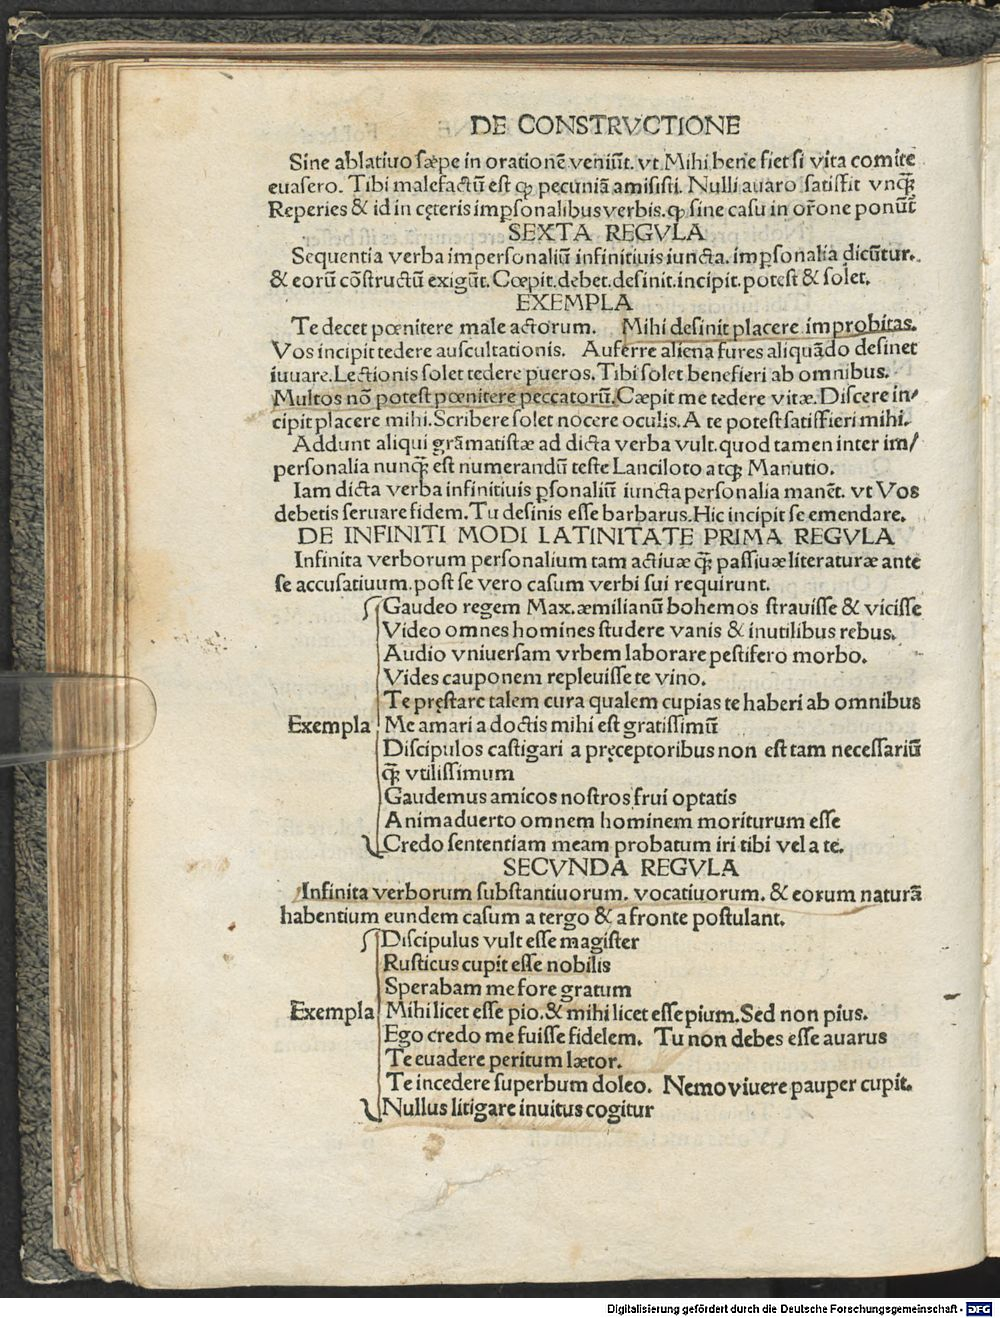 DE CONSTRVCTIONE
Sine ablatiuo sæpe in orationē veniūt. vt. Mihi bene fiet si vita comite
euasero. Tibi malefactū est ꝙ pecuniā amisisti. Nulli auaro satisfit vnꝗ̃
Reperies & id in cęteris imꝑsonalibus verbis. ꝙ sine casu in or̃one ponūt̃
SEXTA REGVLA
Sequentia verba impersonaliū infinitiuis iuncta. imꝑsonalia dicūtur.
& eorū cōstructū exigūt. Cœpit. debet. desinit. incipit. potest & solet.
EXEMPLA
Te decet pœnitere male actorum. Mihi desinit placere improbitas.
Vos incipit tedere auscultationis. Auferre aliena fures aliquādo desinet
iuuare. Lectionis solet tedere pueros. Tibi solet benefieri ab omnibus.
Multos nō potest pœnitere peccatorū. Cæpit me tedere vitæ. Discere in⸗
cipit placere mihi. Scribere solet nocere oculis. A te potest satisfieri mihi.
Addunt aliqui grāmatistæ ad dicta verba vult. quod tamen inter im/
personalia nunꝗ̃ est numerandū teste Lanciloto atqꝫ Manutio.
Iam dicta verba infinitiuis ꝑsonaliū iuncta personalia manēt. vt Vos
debetis seruare fidem. Tu desinis esse barbarus. Hic incipit se emendare.
DE INFINITI MODI LATINITATE PRIMA REGVLA
Infinita verborum personalium tam actiuæ ꝗ̃ passiuæ literaturæ ante
se accusatiuum. post se vero casum verbi sui requirunt.
Gaudeo regem Max. æmilianū bohemos strauisse & vicisse
Video omnes homines studere vanis & inutilibus rebus.
Audio vniuersam vrbem laborare pestifero morbo.
Vides cauponem repleuisse te vino.
Te pręstare talem cura qualem cupias te haberi ab omnibus
Exempla Me amari a doctis mihi est gratissimū
Discipulos castigari a pręceptoribus non est tam necessariū
ꝗ̃ vtilissimum
Gaudemus amicos nostros frui optatis
Animaduerto omnem hominem moriturum esse
Credo sententiam meam probatum iri tibi vel a te.
SECVNDA REGVLA
Infinita verborum substantiuorum. vocatiuorum. & eorum naturā
habentium eundem casum a tergo & a fronte postulant.
Discipulus vult esse magister
Rusticus cupit esse nobilis
Sperabam me fore gratum
Exempla Mihi licet esse pio. & mihi licet esse pium. Sed non pius.
Ego credo me fuisse fidelem. Tu non debes esse auarus
Te euadere peritum lætor.
Te incedere superbum doleo. Nemo viuere pauper cupit.
Nullus litigare inuitus cogitur
Digitalisierung gefördert durch die Deutsche Forschungsgemeinschaft - DFG